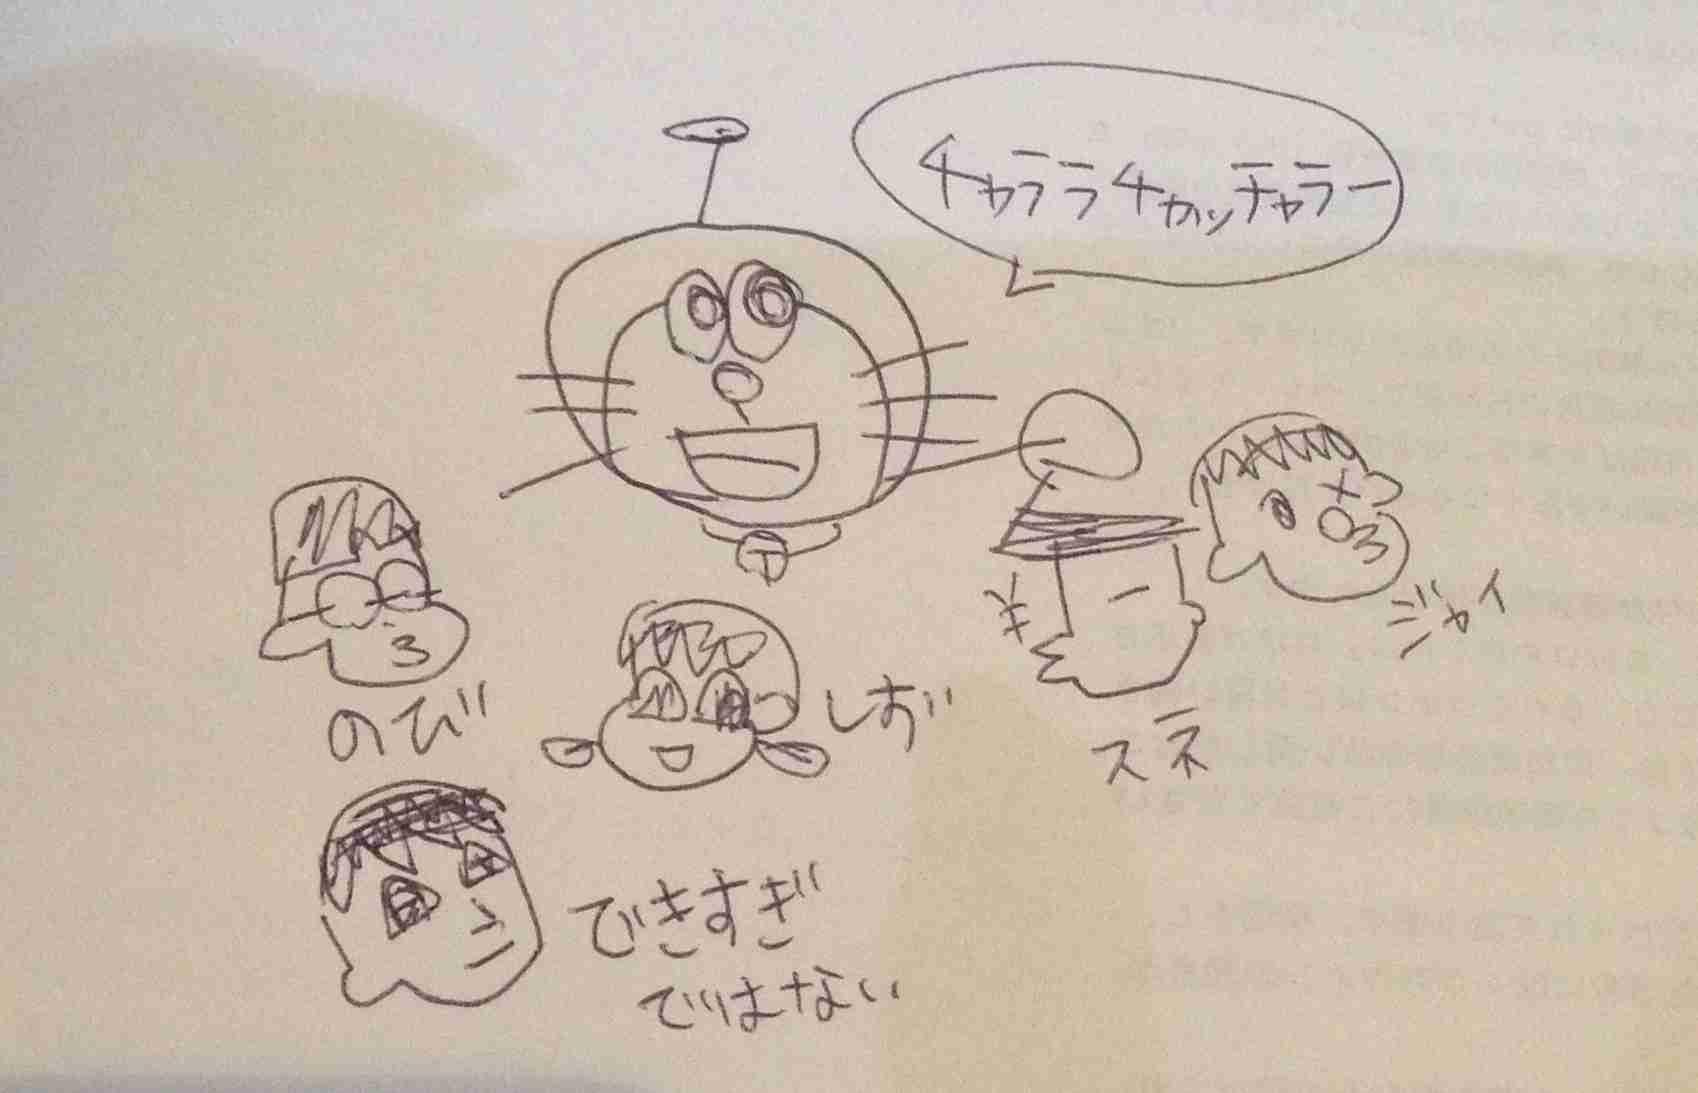 チャララチャカッチャラー
ジャイ
¥
のび
しず
スネ
できすぎ
ではない